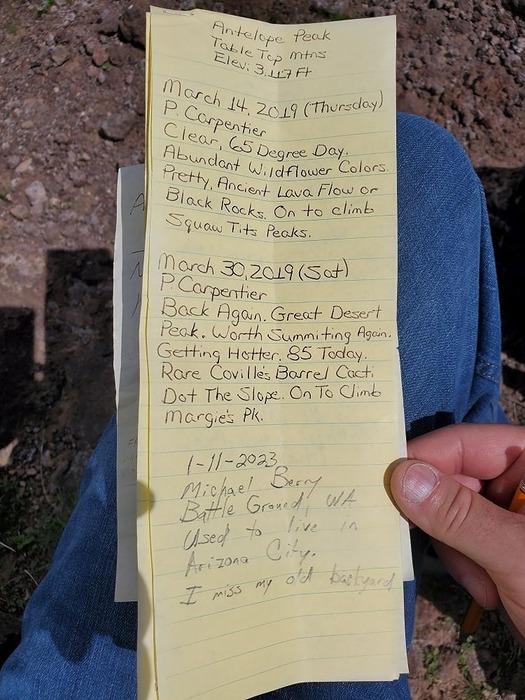 Antelope Peak
Table Top Mtns
Elev: 3,117 Ft
March 14, 2019 (Thursday)
P. Carpentier
Clear, 65 Degree Day.
Abundant Wildflower Colors.
Pretty, Ancient Lava Flow or
Black Rocks. On to climb
Squaw Tits Peaks.
March 30, 2019 (Sat)
P. Carpentier
Back Again. Great Desert
Peak. Worth Summiting Again.
Getting Hotter. 85 Today.
Rare Coville's Barrel Cacti
Dot The Slope. On To Climb
Margie's Pk.
1-11-2023
Michael Berry
Battle Ground, WA
Used to live in
Arizona City.
I miss my old backyard